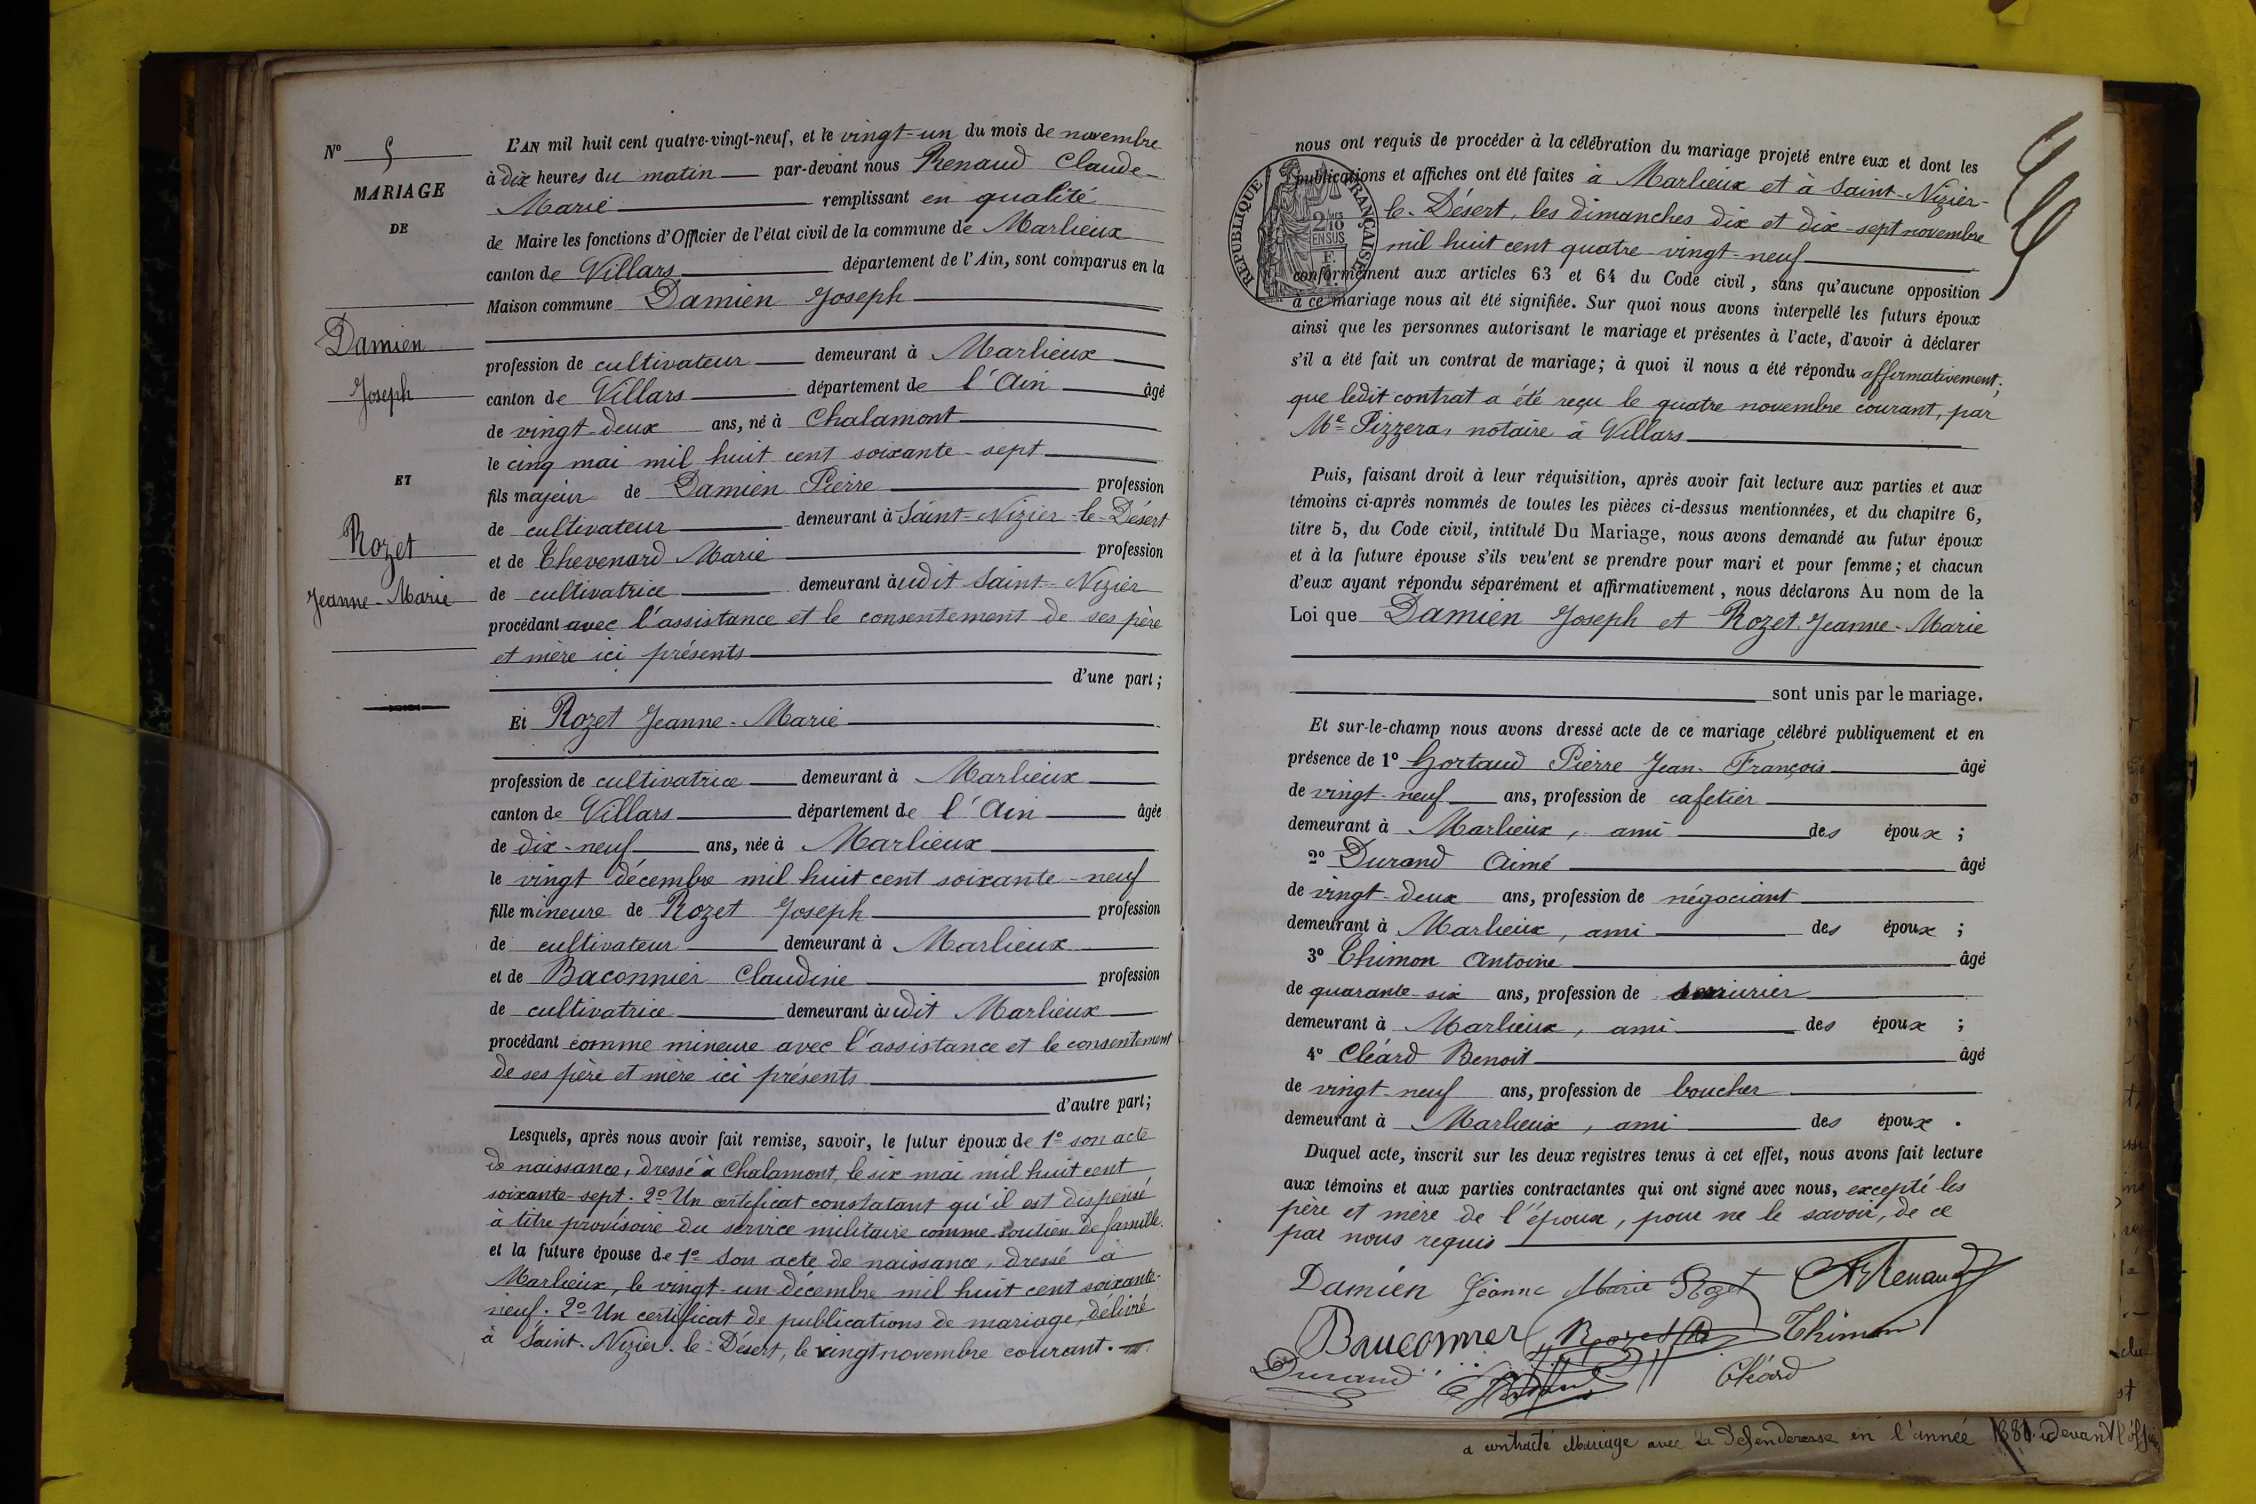 N° 5
MARIAGE
DE
Damien
Joseph
ET
Rozet
Jeanne-Marie
L'AN mil huit cent quatre-vingt-neuf, et le vingt-un du mois de novembre
à dix heures du matin par-devant nous Renaud Claude-
Marie remplissant en qualité
de Maire les fonctions d'Officier de l'état civil de la commune de Marlieux
canton de Villars département de l'Ain, sont comparus en la
Maison commune Damien Joseph
profession de cultivateur demeurant à Marlieux
canton de Villars département de l'Ain âgé
de vingt-deux ans, né à Chalamont
le cinq mai mil huit cent soixante-sept
fils majeur de Damien Pierre profession
de cultivateur demeurant à Saint-Nizier-le-Désert
et de Thevenard Marie profession
de cultivatrice demeurant audit Saint-Nizier
procédant avec l'assistance et le consentement de ses père
et mère ici présents
d'une part;
Et Rozet Jeanne-Marie
profession de cultivatrice demeurant à Marlieux
canton de Villars département de l'Ain âgée
de dix-neuf ans, née à Marlieux
le vingt décembre mil huit cent soixante-neuf
fille mineure de Rozet Joseph profession
de cultivateur demeurant à Marlieux
et de Baconnier Claudine profession
de cultivatrice demeurant audit Marlieux
procédant comme mineure avec l'assistance et le consentement
de ses père et mère ici présents
d'autre part;
Lesquels, après nous avoir fait remise, savoir, le futur époux de 1° son acte
de naissance, dressé à Chalamont, le six mai mil huit cent
soixante-sept. 2° Un certificat constatant qu'il est dispensé
à titre provisoire du service militaire comme soutien de famille.
et la future épouse de 1° Son acte de naissance, dressé à
Marlieux, le vingt-un décembre mil huit cent soixante-
neuf. 2° Un certificat de publications de mariage, délivré
à Saint-Nizier-le-Désert, le vingt novembre courant.
RÉPUBLIQUE FRANÇAISE
2/10 EN SUS
nous ont requis de procéder à la célébration du mariage projeté entre eux et dont les
publications et affiches ont été faites à Marlieux et à Saint-Nizier-
le-Désert, les dimanches dix et dix-sept novembre
mil huit cent quatre-vingt-neuf
conformément aux articles 63 et 64 du Code civil, sans qu'aucune opposition
à ce mariage nous ait été signifiée. Sur quoi nous avons interpellé les futurs époux
ainsi que les personnes autorisant le mariage et présentes à l'acte, d'avoir à déclarer
s'il a été fait un contrat de mariage; à quoi il nous a été répondu affirmativement;
que ledit contrat a été reçu le quatre novembre courant, par
Me Pizzera, notaire à Villars
Puis, faisant droit à leur réquisition, après avoir fait lecture aux parties et aux
témoins ci-après nommés de toutes les pièces ci-dessus mentionnées, et du chapitre 6,
titre 5, du Code civil, intitulé Du Mariage, nous avons demandé au futur époux
et à la future épouse s'ils veu'ent se prendre pour mari et pour femme; et chacun
d'eux ayant répondu séparément et affirmativement, nous déclarons Au nom de la
Loi que Damien Joseph et Rozet Jeanne-Marie
sont unis par le mariage.
Et sur-le-champ nous avons dressé acte de ce mariage célébré publiquement et en
présence de 1° Gortaud Pierre Jean-François âgé
de vingt-neuf ans, profession de cafetier
demeurant à Marlieux, ami des époux;
2° Durand Aimé âgé
de vingt-deux ans, profession de négociant
demeurant à Marlieux, ami des époux;
3° Thimon Antoine âgé
de quarante-six ans, profession de serrurier
demeurant à Marlieux, ami des époux;
4° Cléard Benoit âgé
de vingt-neuf ans, profession de boucher
demeurant à Marlieux, ami des époux.
Duquel acte, inscrit sur les deux registres tenus à cet effet, nous avons fait lecture
aux témoins et aux parties contractantes qui ont signé avec nous, excepté les
père et mère de l'époux, pour ne le savoir, de ce
par nous requis
Damien Jeanne Marie Rozet Renaud
Bauconnier Rozet Thimon
Durand Cléard
a contracté Mariage avec la Défenderesse en l'année 188 devant l'offi